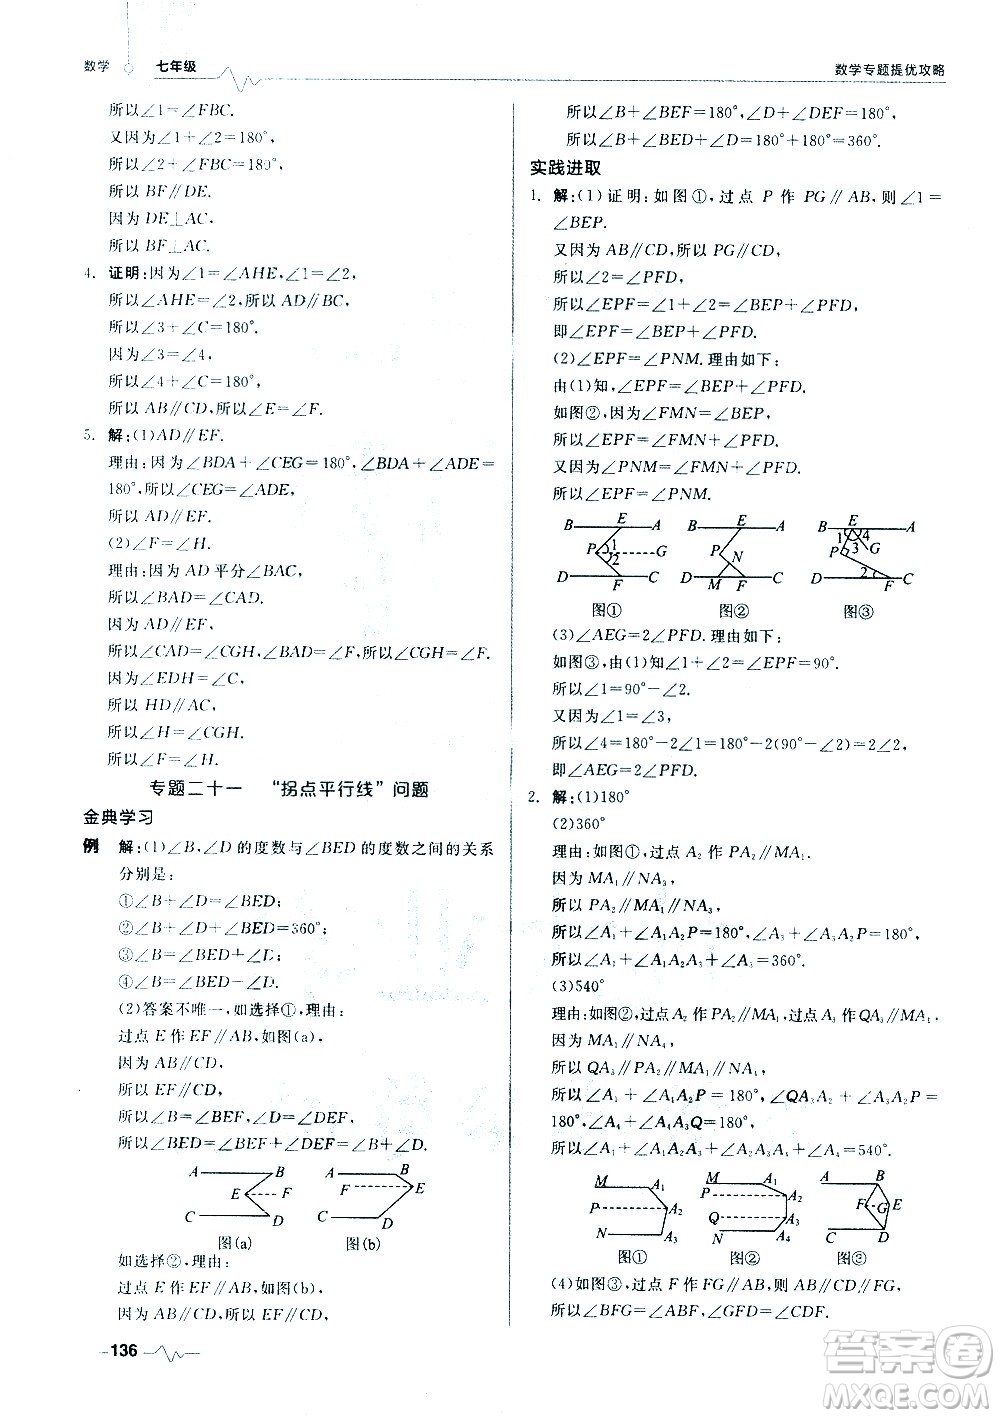 数学
七年级
数学专题提优攻略
所以∠1=∠FBC.
又因为∠1+∠2=180°,
所以∠2+∠FBC=180°,
所以BF∥DE.
因为DE⊥AC,
所以BF⊥AC.
4. 证明:因为∠1=∠AHE,∠1=∠2,
所以∠AHE=∠2,所以AD∥BC,
所以∠3+∠C=180°.
因为∠3=∠4,
所以∠4+∠C=180°,
所以AB∥CD,所以∠E=∠F.
5. 解:(1)AD∥EF.
理由:因为∠BDA+∠CEG=180°,∠BDA+∠ADE=
180°,所以∠CEG=∠ADE,
所以AD∥EF.
(2)∠F=∠H.
理由:因为AD平分∠BAC,
所以∠BAD=∠CAD.
因为AD∥EF,
所以∠CAD=∠CGH,∠BAD=∠F,所以∠CGH=∠F.
因为∠EDH=∠C,
所以HD∥AC,
所以∠H=∠CGH.
所以∠F=∠H.
专题二十一 “拐点平行线”问题
金典学习
例 解:(1)∠B,∠D的度数与∠BED的度数之间的关系
分别是:
①∠B+∠D=∠BED;
②∠B+∠D+∠BED=360°;
③∠BED=∠D-∠B;
④∠BED=∠B-∠D.
(2)答案不唯一,如选择①,理由:
过点E作EF∥AB,如图(a),
因为AB∥CD,
所以EF∥CD,
所以∠B=∠BEF,∠D=∠DEF,
所以∠BED=∠BEF+∠DEF=∠B+∠D.
A B
E F
C D
图(a)
A B
F E
C D
图(b)
如选择②,理由:
过点E作EF∥AB,如图(b),
因为AB∥CD,所以EF∥CD,
136
所以∠B+∠BEF=180°,∠D+∠DEF=180°,
所以∠B+∠BED+∠D=180°+180°=360°.
实践进取
1. 解:(1)证明:如图①,过点P作PG∥AB,则∠1=
∠BEP.
又因为AB∥CD,所以PG∥CD,
所以∠2=∠PFD,
所以∠EPF=∠1+∠2=∠BEP+∠PFD,
即∠EPF=∠BEP+∠PFD.
(2)∠EPF=∠PNM.理由如下:
由(1)知,∠EPF=∠BEP+∠PFD.
如图②,因为∠FMN=∠BEP,
所以∠EPF=∠FMN+∠PFD.
又因为∠PNM=∠FMN+∠PFD,
所以∠EPF=∠PNM.
B E A
P 1 G
2
D F C
图①
B E A
P N
D M F C
图②
B E A
1 4
P 3 G
D 2 F C
图③
(3)∠AEG=2∠PFD.理由如下:
如图③,由(1)知∠1+∠2=∠EPF=90°,
所以∠1=90°-∠2.
又因为∠1=∠3,
所以∠4=180°-2∠1=180°-2(90°-∠2)=2∠2,
即∠AEG=2∠PFD.
2. 解:(1)180°
(2)360°
理由:如图①,过点A₂作PA₂∥MA₁.
因为MA₁∥NA₃,
所以PA₂∥MA₁∥NA₃,
所以∠A₁+∠A₁A₂P=∠A₃+∠A₃A₂P=180°,
所以∠A₁+∠A₁A₂A₃+∠A₃=360°.
(3)540°
理由:如图②,过点A₂作PA₂∥MA₁,过点A₃作QA₃∥MA₁.
因为MA₁∥NA₄,
所以QA₃∥PA₂∥MA₁∥NA₄,
所以∠A₁+∠A₁A₂P=180°,∠QA₃A₂+∠A₃A₂P=
180°,∠A₄+∠A₄A₃Q=180°,
所以∠A₁+∠A₁A₂A₃+∠A₂A₃A₄+∠A₄=540°.
M A₁
P A₂
N A₃
图①
M A₁
P A₂
Q A₃
N A₄
图②
A B
F G E
C D
图③
(4)如图③,过点F作FG∥AB,则AB∥CD∥FG,
所以∠BFG=∠ABF,∠GFD=∠CDF.
答案圈
MXQE.COM